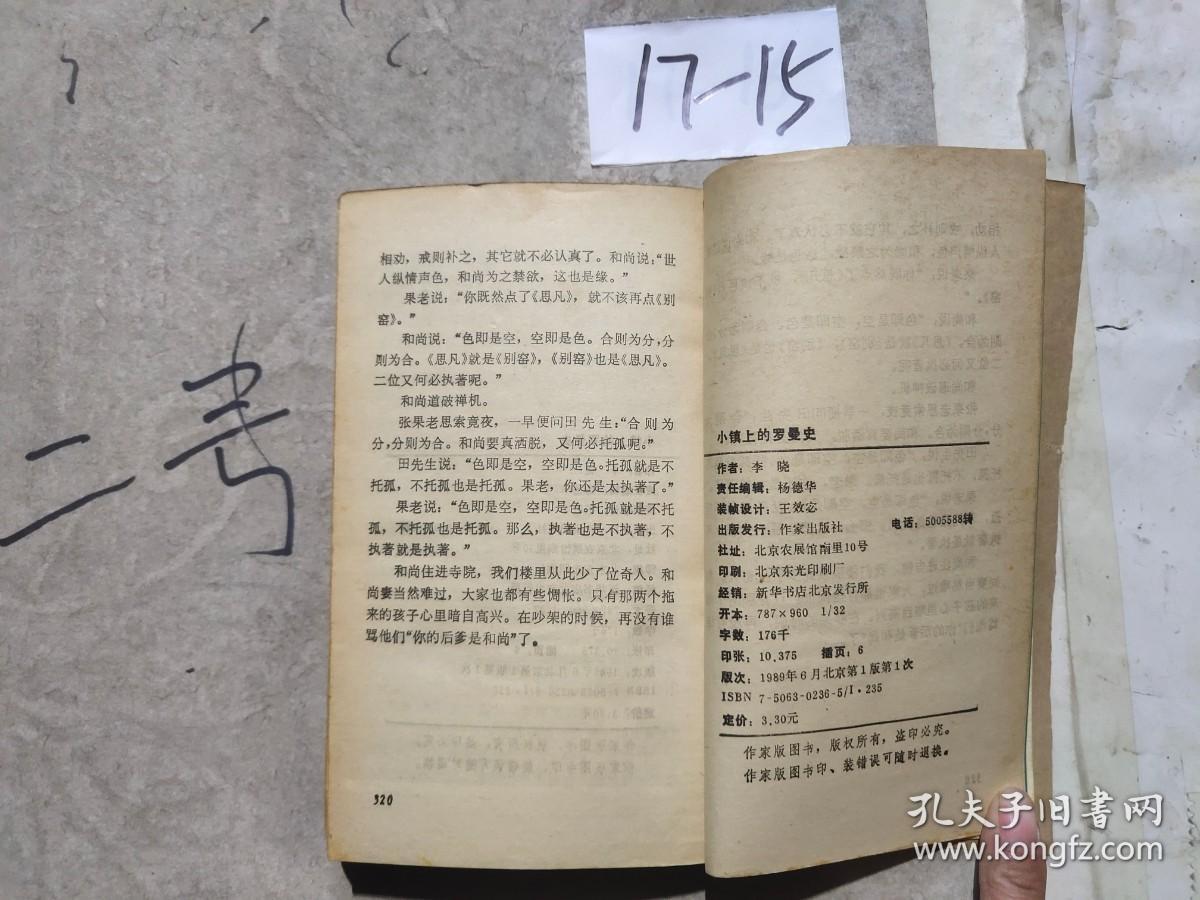 17-15
二考
相劝，戒则补之，其它就不必认真了。和尚说：“世
人纵情声色，和尚为之禁欲，这也是缘。”
果老说：“你既然点了《思凡》，就不该再点《别
窑》。”
和尚说：“色即是空，空即是色。合则为分，分
则为合。《思凡》就是《别窑》，《别窑》也是《思凡》。
二位又何必执著呢。”
和尚道破禅机。
张果老思索竟夜，一早便问田先生：“合则为
分，分则为合。和尚要真洒脱，又何必托孤呢。”
田先生说：“色即是空，空即是色。托孤就是不
托孤，不托孤也是托孤。果老，你还是太执著了。”
果老说：“色即是空，空即是色。托孤就是不托
孤，不托孤也是托孤。那么，执著也是不执著，不
执著就是执著。”
和尚住进寺院，我们楼里从此少了位奇人。和
尚妻当然难过，大家也都有些惆怅。只有那两个拖
来的孩子心里暗自高兴。在吵架的时候，再没有谁
骂他们“你的后爹是和尚”了。
320
小镇上的罗曼史
作者：李 晓
责任编辑：杨德华
装帧设计：王效宓
出版发行：作家出版社 电话：5005588转
社址：北京农展馆南里10号
印刷：北京东光印刷厂
经销：新华书店北京发行所
开本：787×960 1/32
字数：176千
印张：10.375 插页：6
版次：1989年6月北京第1版第1次
ISBN 7-5063-0236-5/I·235
定价：3.30元
作家版图书，版权所有，盗印必究。
作家版图书印、装错误可随时退换。
孔夫子旧书网
www.kongfz.com